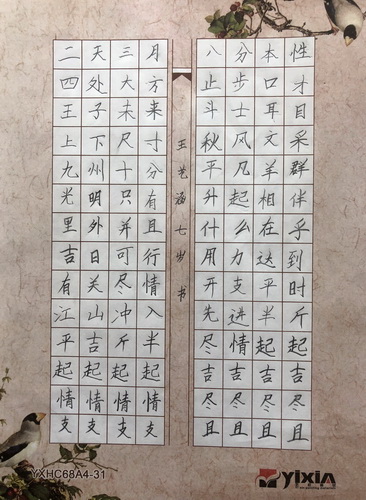 二天三月
四处大方
王子未来
上下尺寸
九州十分
光明只有
里外并且
吉日可行
有关尽情
江山冲入
平吉斤半
起起起起
情情情情
支支支支
王艺涵七岁书
八分本性
止步口才
斗士耳目
秋风文采
平凡羊群
升起相伴
什么在乎
用力达到
开支平时
先进半斤
尽情起起
吉吉吉吉
尽尽尽尽
且且且且
YXHC68A4-31
yixin